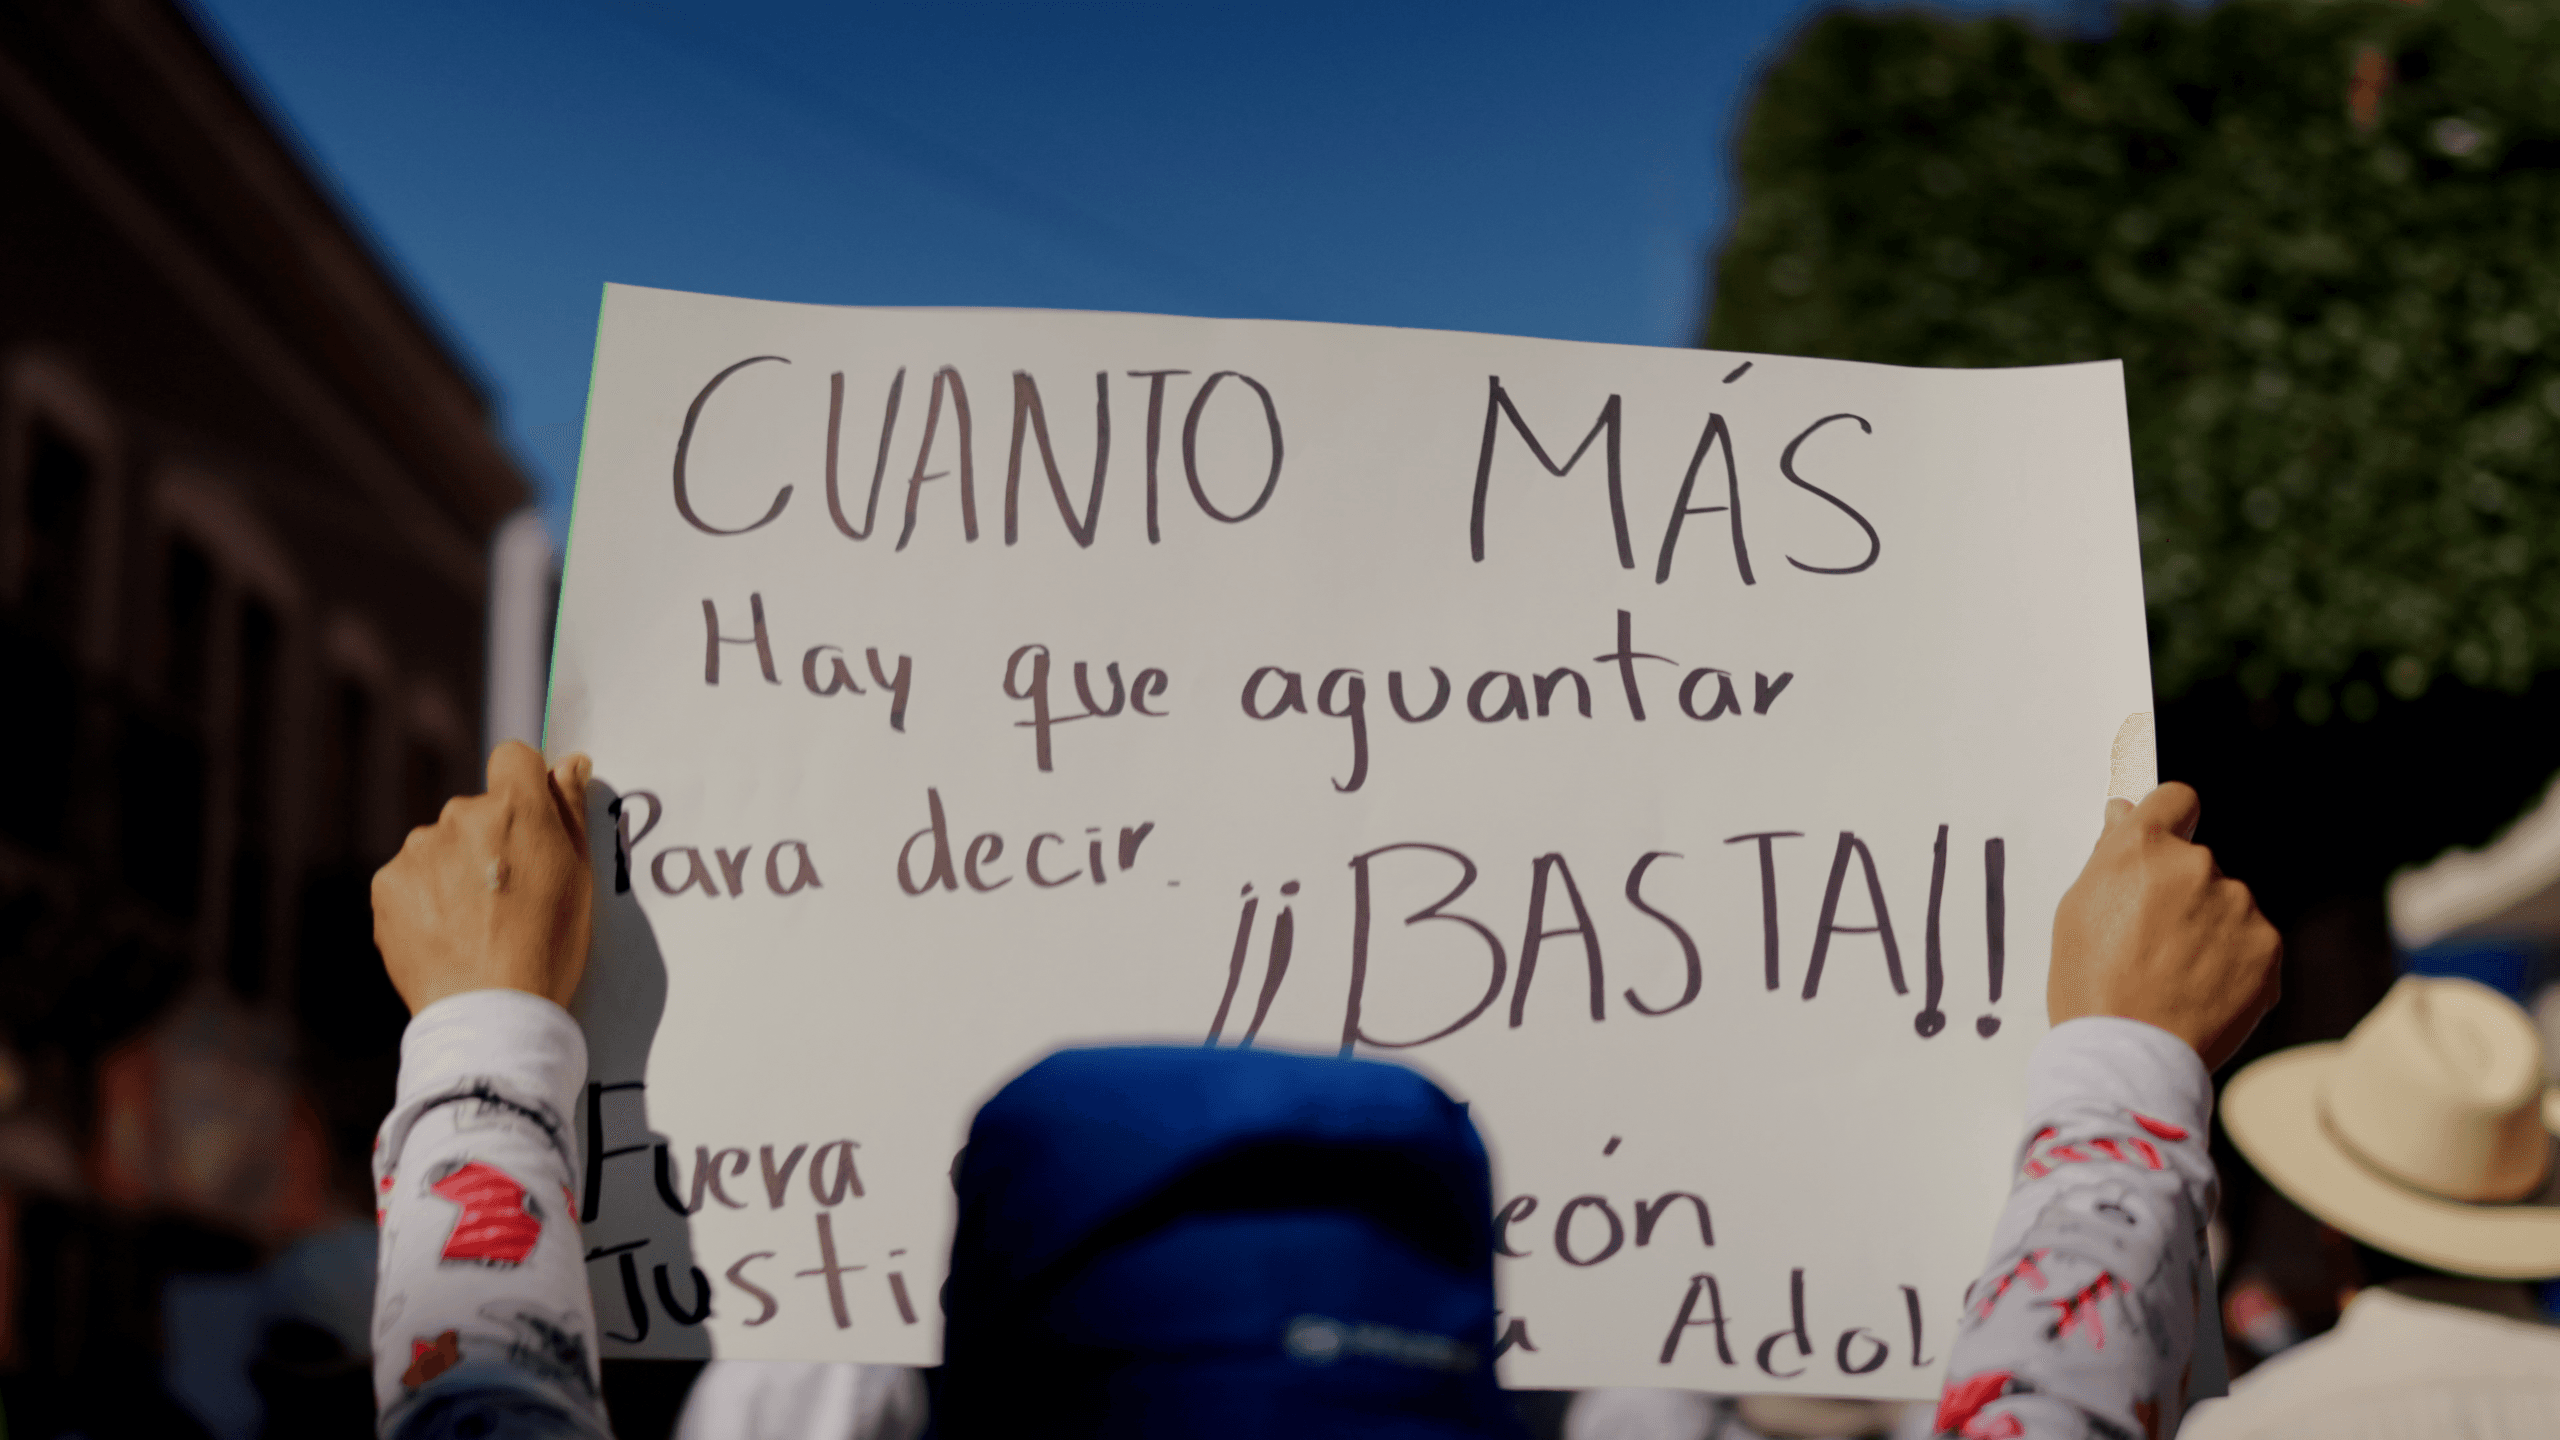 CUANTO MÁS
Hay que aguantar
Para decir.
¡¡BASTA!!
Fuera
Justi
eón
Adol